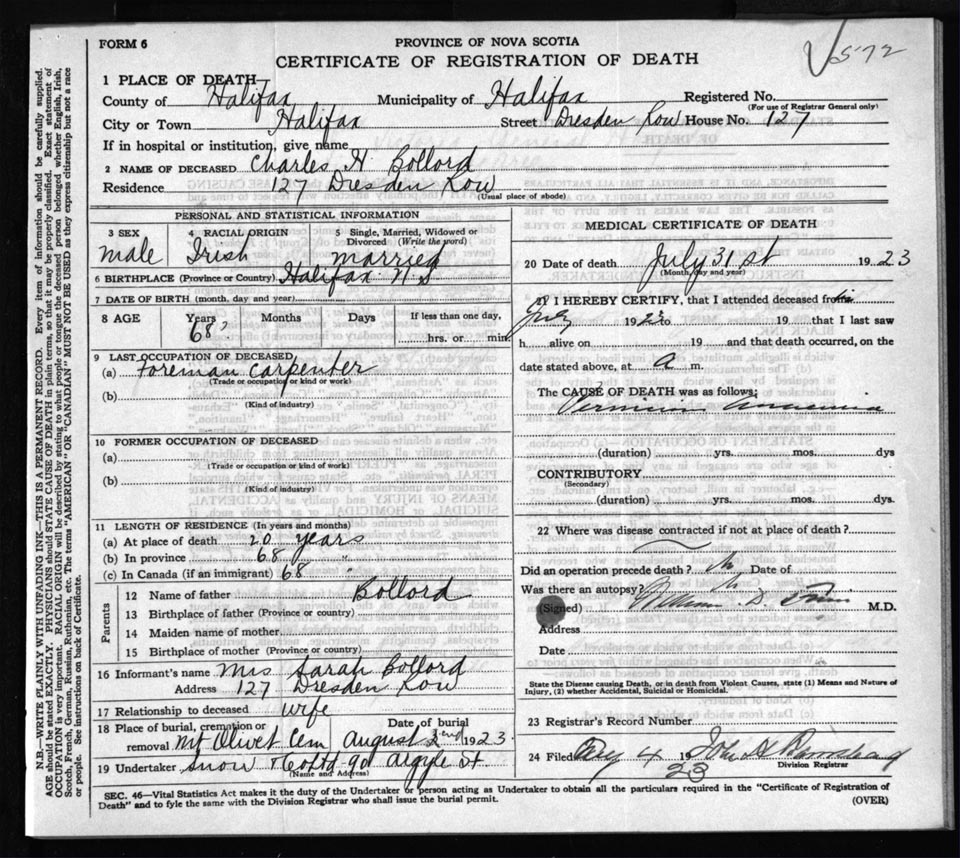 FORM 6
PROVINCE OF NOVA SCOTIA
CERTIFICATE OF REGISTRATION OF DEATH
572
1 PLACE OF DEATH
County of Halifax Municipality of Halifax Registered No.
(For use of Registrar General only)
City or Town Halifax Street Dresden Row House No. 127
If in hospital or institution, give name
2 NAME OF DECEASED Charles H. Bollord
Residence 127 Dresden Row
(Usual place of abode)
PERSONAL AND STATISTICAL INFORMATION
3 SEX 4 RACIAL ORIGIN 5 Single, Married, Widowed or Divorced (Write the word)
male Irish married
6 BIRTHPLACE (Province or Country) Halifax N.S
7 DATE OF BIRTH (month, day and year)
8 AGE Years Months Days If less than one day,
68 hrs. or min.
9 LAST OCCUPATION OF DECEASED
(a) Foreman Carpenter
(Trade or occupation or kind or work)
(b)
(Kind of industry)
10 FORMER OCCUPATION OF DECEASED
(a)
(Trade or occupation or kind or work)
(b)
(Kind of industry)
11 LENGTH OF RESIDENCE (In years and months)
(a) At place of death 20 years
(b) In province 68 "
(c) In Canada (if an immigrant) 68 "
Parents
12 Name of father Bollord
13 Birthplace of father (Province or country)
14 Maiden name of mother
15 Birthplace of mother (Province or country)
16 Informant's name Mrs Sarah Bollord
Address 127 Dresden Row
17 Relationship to deceased wife
18 Place of burial, cremation or removal Mt Olivet Cem Date of burial August 2nd 1923
19 Undertaker Snow & Co Ltd 90 Argyle St
(Name and Address)
MEDICAL CERTIFICATE OF DEATH
20 Date of death July 31st 1923
(Month, day and year)
21 I HEREBY CERTIFY, that I attended deceased from
July 1923 to 19 that I last saw
h alive on 19 and that death occurred, on the
date stated above, at a m.
The CAUSE OF DEATH was as follows:
(duration) yrs. mos. dys
CONTRIBUTORY
(Secondary)
(duration) yrs. mos. dys.
22 Where was disease contracted if not at place of death?
Did an operation precede death? No Date of
Was there an autopsy? No
(Signed) William D. M.D.
Address
Date
State the Disease causing Death, or in death from Violent Causes, state (1) Means and Nature of
Injury, (2) whether Accidental, Suicidal or Homicidal.
23 Registrar's Record Number
24 Filed Aug 4 1923 John A
Division Registrar
SEC. 46—Vital Statistics Act makes it the duty of the Undertaker or person acting as Undertaker to obtain all the particulars required in the "Certificate of Registration of
Death" and to fyle the same with the Division Registrar who shall issue the burial permit.
(OVER)
N.B.—WRITE PLAINLY WITH UNFADING INK—THIS IS A PERMANENT RECORD. Every item of information should be carefully supplied.
AGE should be stated EXACTLY. PHYSICIANS should STATE CAUSE OF DEATH in plain terms, so that it may be properly classified. Exact statement of
OCCUPATION is very important. RACIAL ORIGIN will be described by stating to what people or tongue the deceased person belonged, whether English, Irish,
Scotch, French, German, Russian, Ruthenian, etc. The terms "AMERICAN" OR "CANADIAN" MUST NOT BE USED as they express citizenship but not a race
or people. See instructions on back of Certificate.